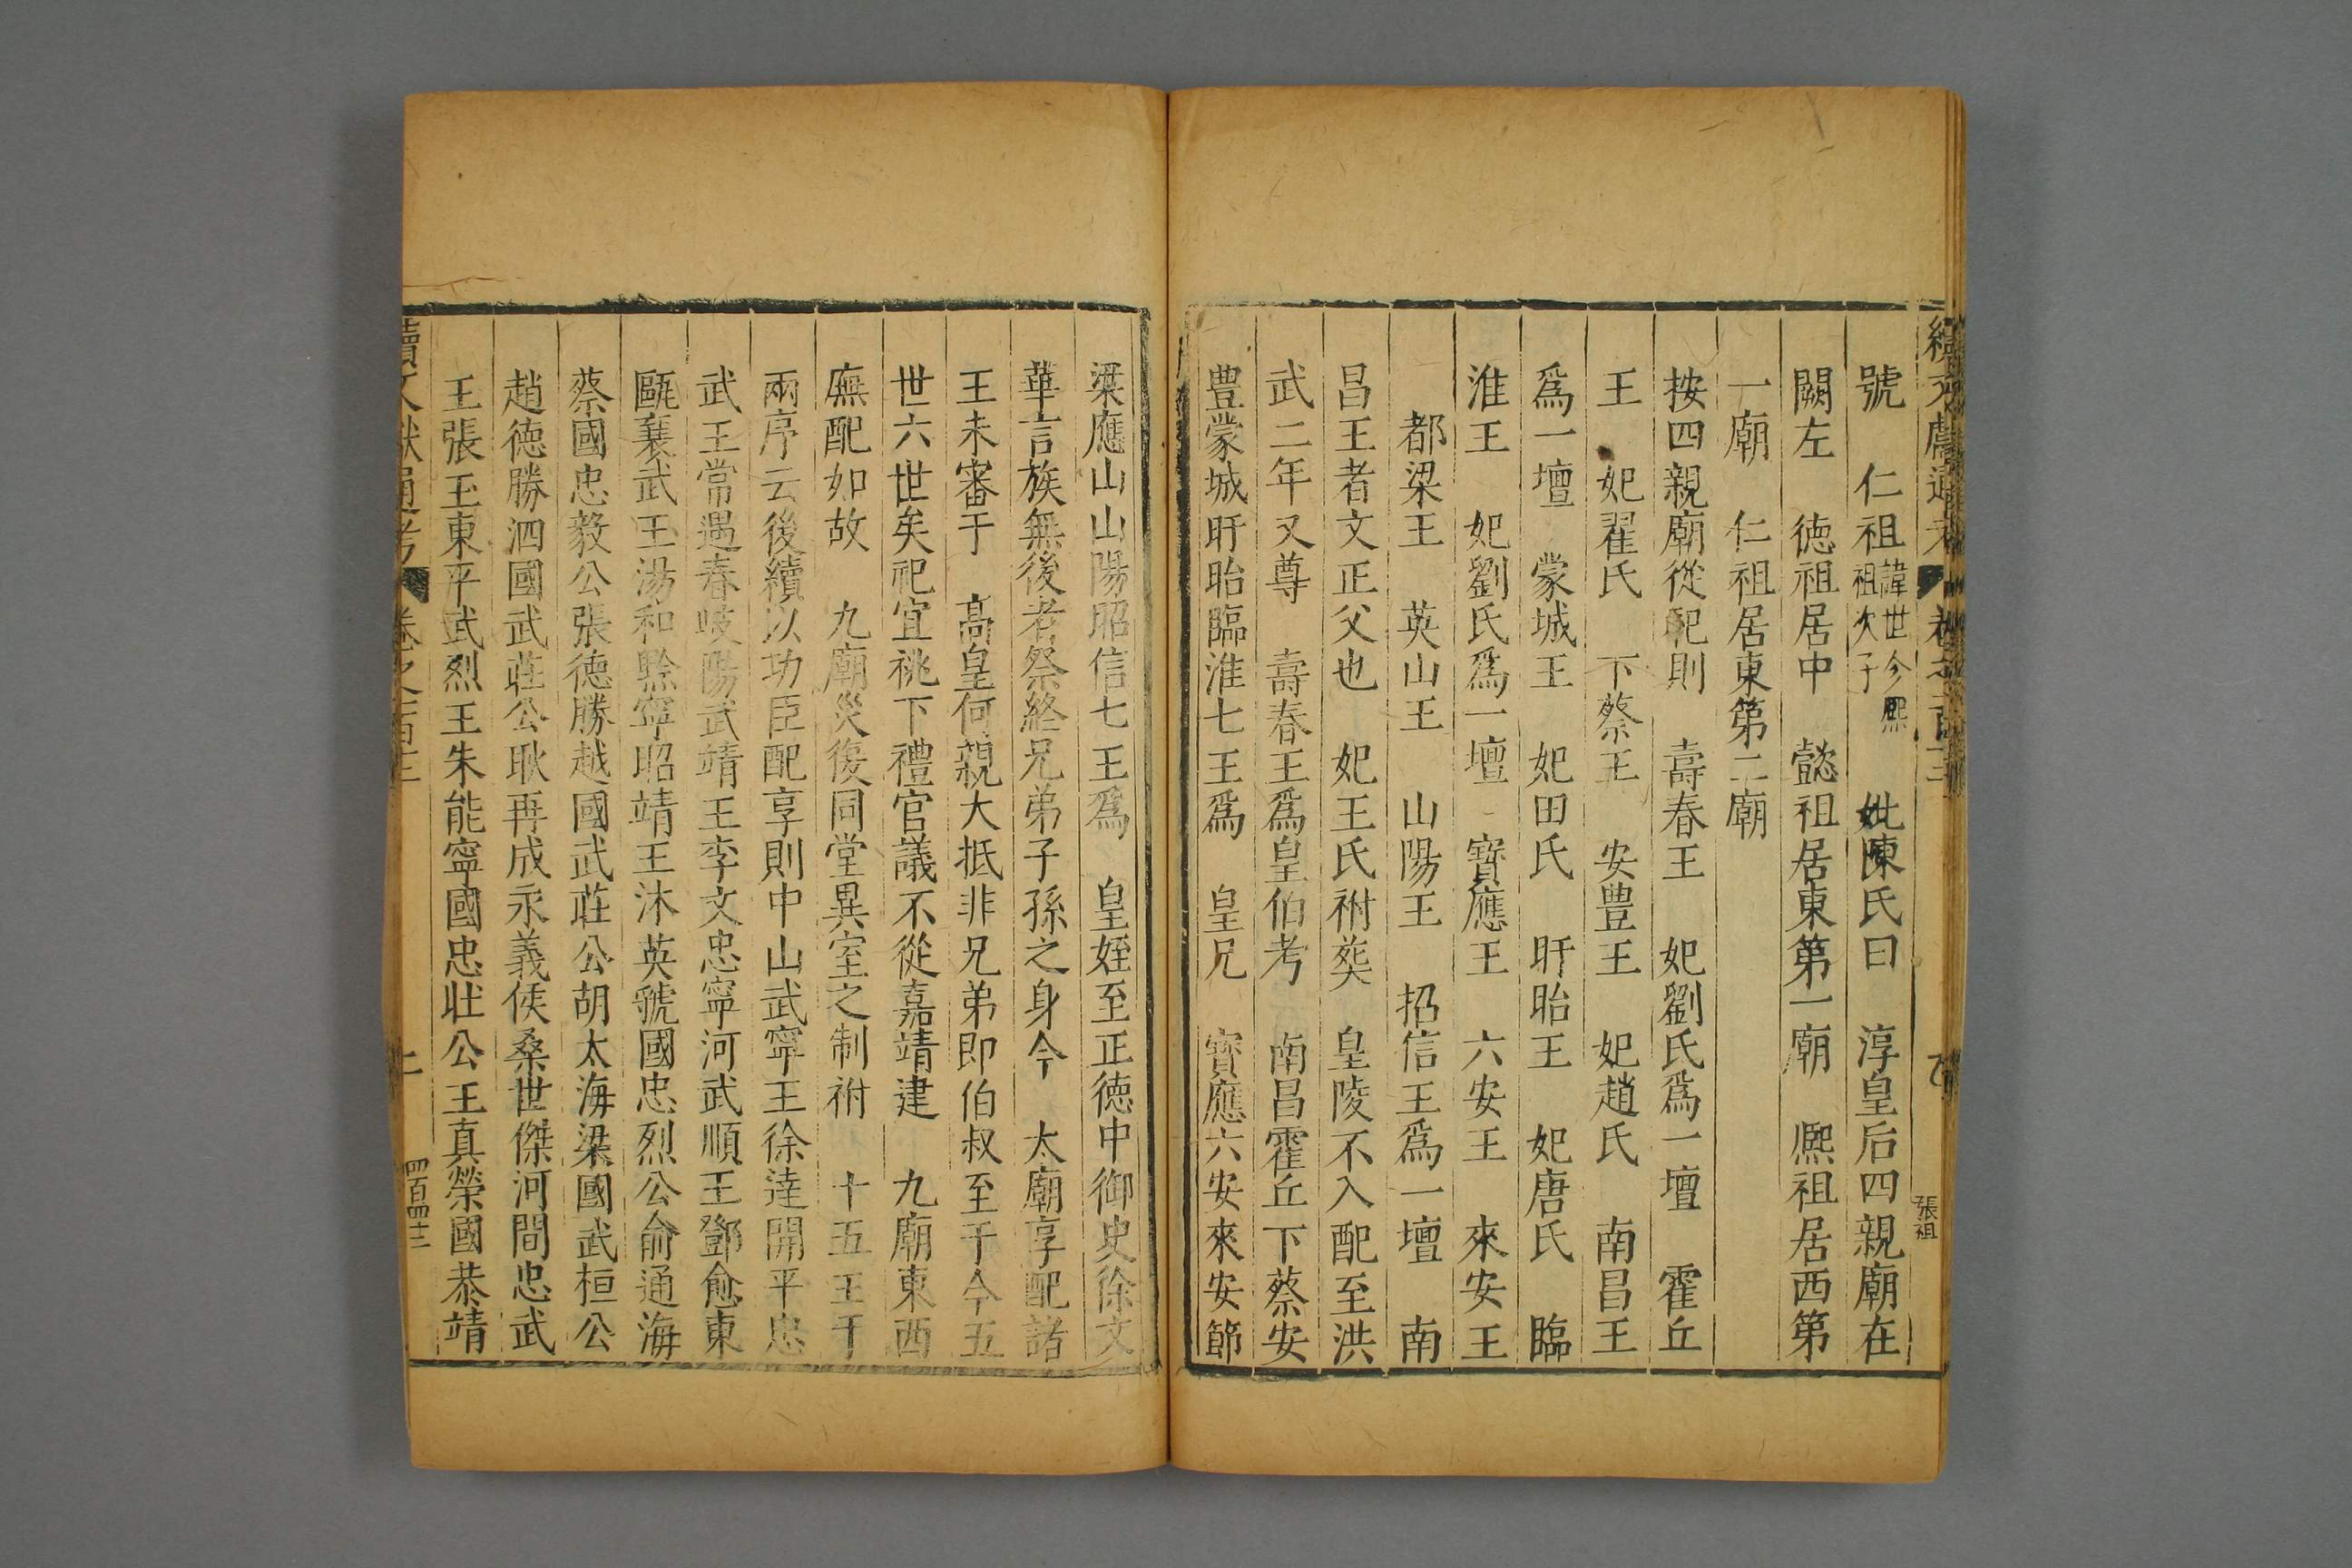 續文獻通考
卷之百三
張祖
號　仁祖諱世今熙祖次子　妣陳氏曰　淳皇后四親廟在
闕左　德祖居中　懿祖居東第一廟　熈祖居西第
一廟　仁祖居東第二廟
按四親廟從配則　壽春王　妃劉氏爲一壇　霍丘
王　妃翟氏　下蔡王　安豊王　妃趙氏　南昌王
爲一壇　蒙城王　妃田氏　盱眙王　妃唐氏　臨
淮王　妃劉氏爲一壇　寳應王　六安王　來安王
都梁王　英山王　山陽王　招信王爲一壇　南
昌王者文正父也　妃王氏祔葬　皇陵不入配至洪
武二年又尊　壽春王爲皇伯考　南昌霍丘下蔡安
豊蒙城盱眙臨淮七王爲　皇兄　寳應六安來安節
梁應山山陽昭信七王爲　皇姪至正德中御史徐文
華言族無後者祭終兄弟子孫之身今　太廟享配諸
王未審于　高皇何親大抵非兄弟即伯叔至于今五
世六世矣祀宜祧下禮官議不從嘉靖建　九廟東西
廡配如故　九廟災復同堂異室之制祔　十五王于
兩序云後續以功臣配享則中山武寧王徐逹開平忠
武王常遇春岐陽武靖王李文忠寧河武順王鄧愈東
甌襄武王湯和黔寧昭靖王沐英虢國忠烈公俞通海
蔡國忠毅公張德勝越國武莊公胡太海梁國武桓公
趙德勝泗國武莊公耿再成永義侯桑世傑河間忠武
王張玉東平武烈王朱能寧國忠壯公王真榮國恭靖
續文獻通考
卷之百三
四百四十二